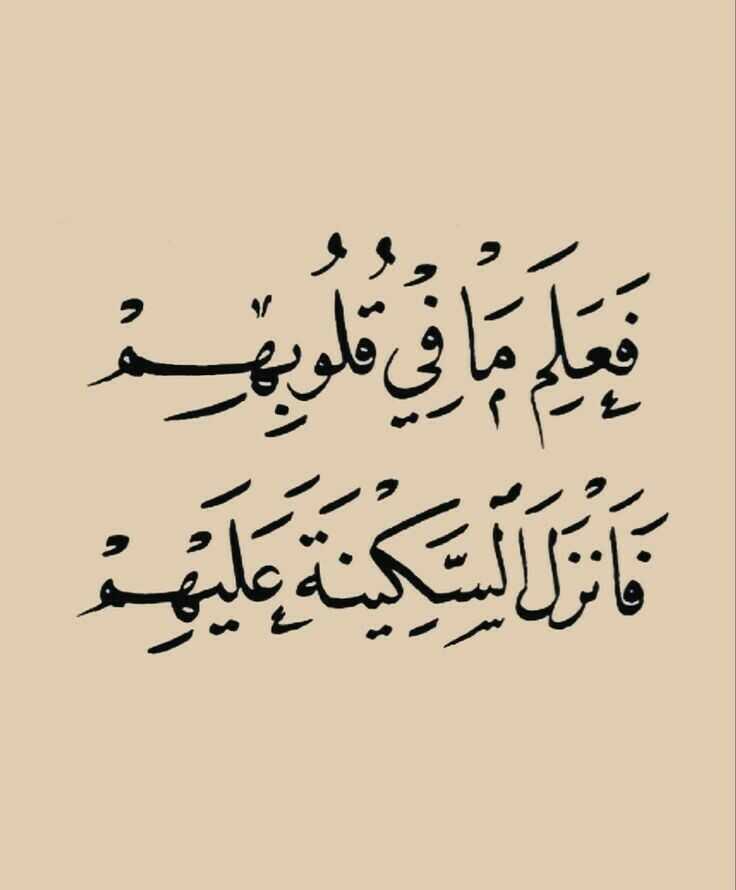 فَعَلِمَ مَا فِي قُلُوبِهِمْ
فَاَنْزَلَ السَّكِينَةَ عَلَيْهِمْ